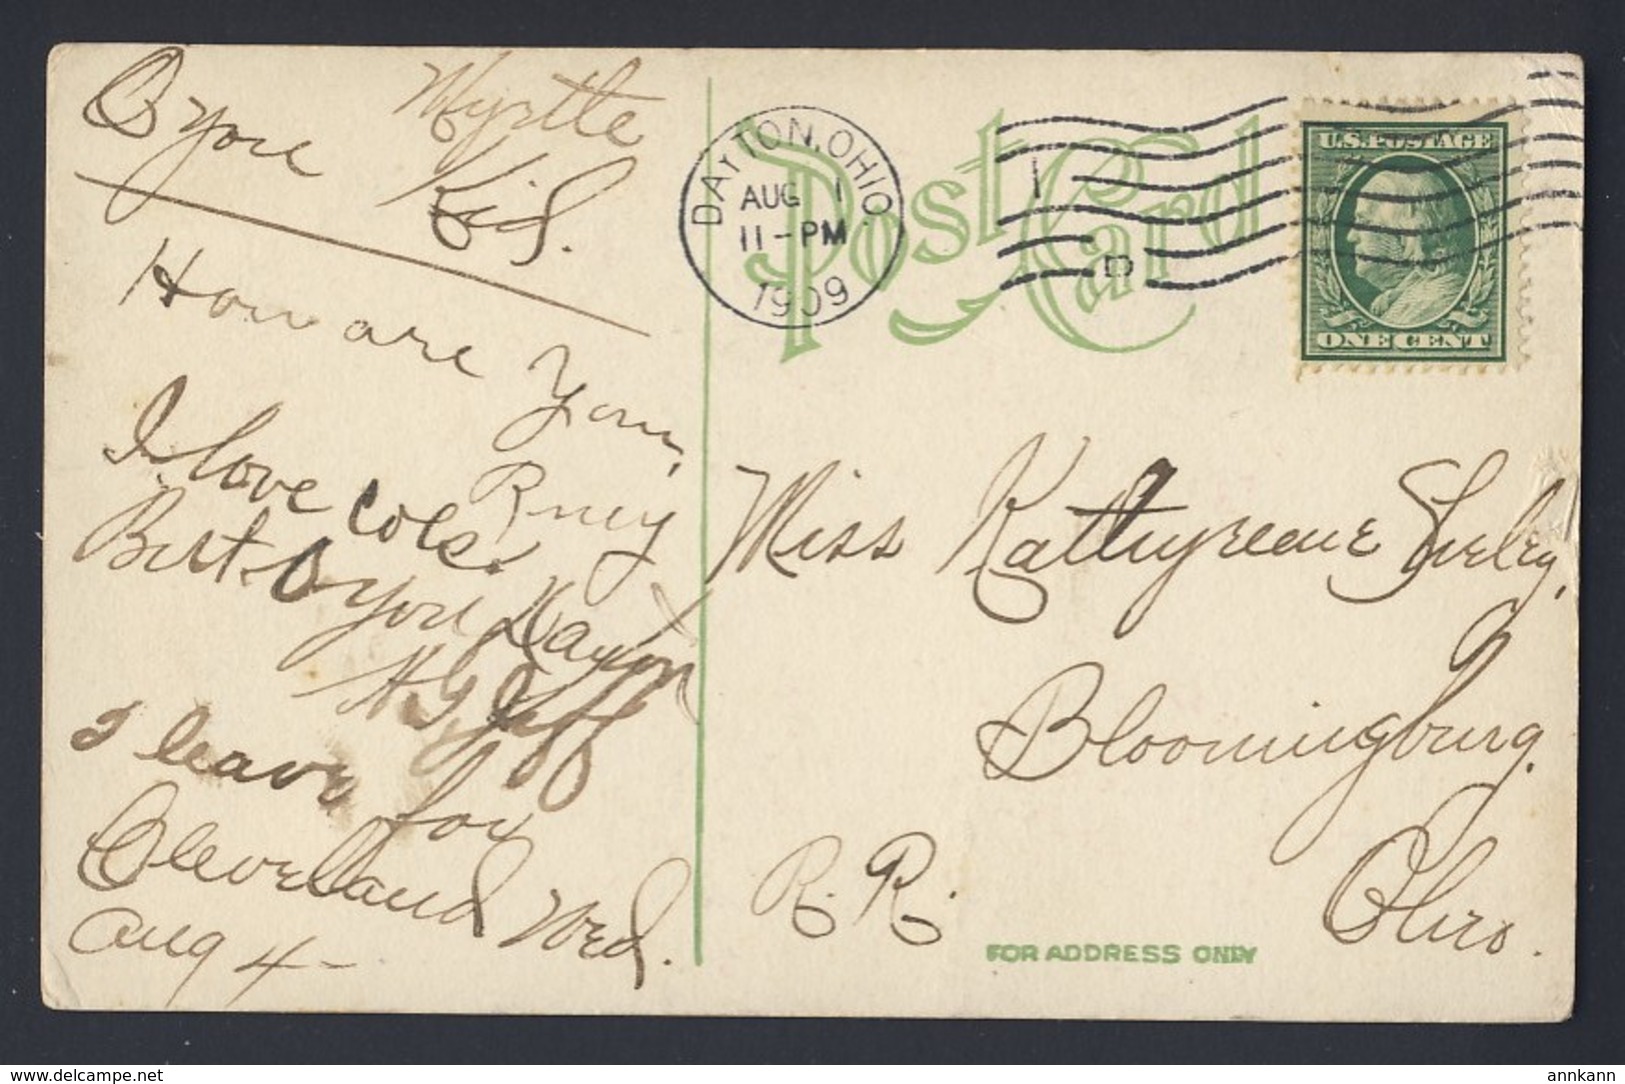 O you
Myrtle
Kid.
How are
you,
I love
Best O you
H. G. Jeff
I leave for
Cleveland Wed.
Aug 4 -
Post Card
DAYTON, OHIO.
AUG 1
11-PM
1909
1
D
U.S. POSTAGE
ONE CENT
Miss
Bloomingburg.
Ohio.
R. R.
FOR ADDRESS ONLY
www.delcampe.net
annkann